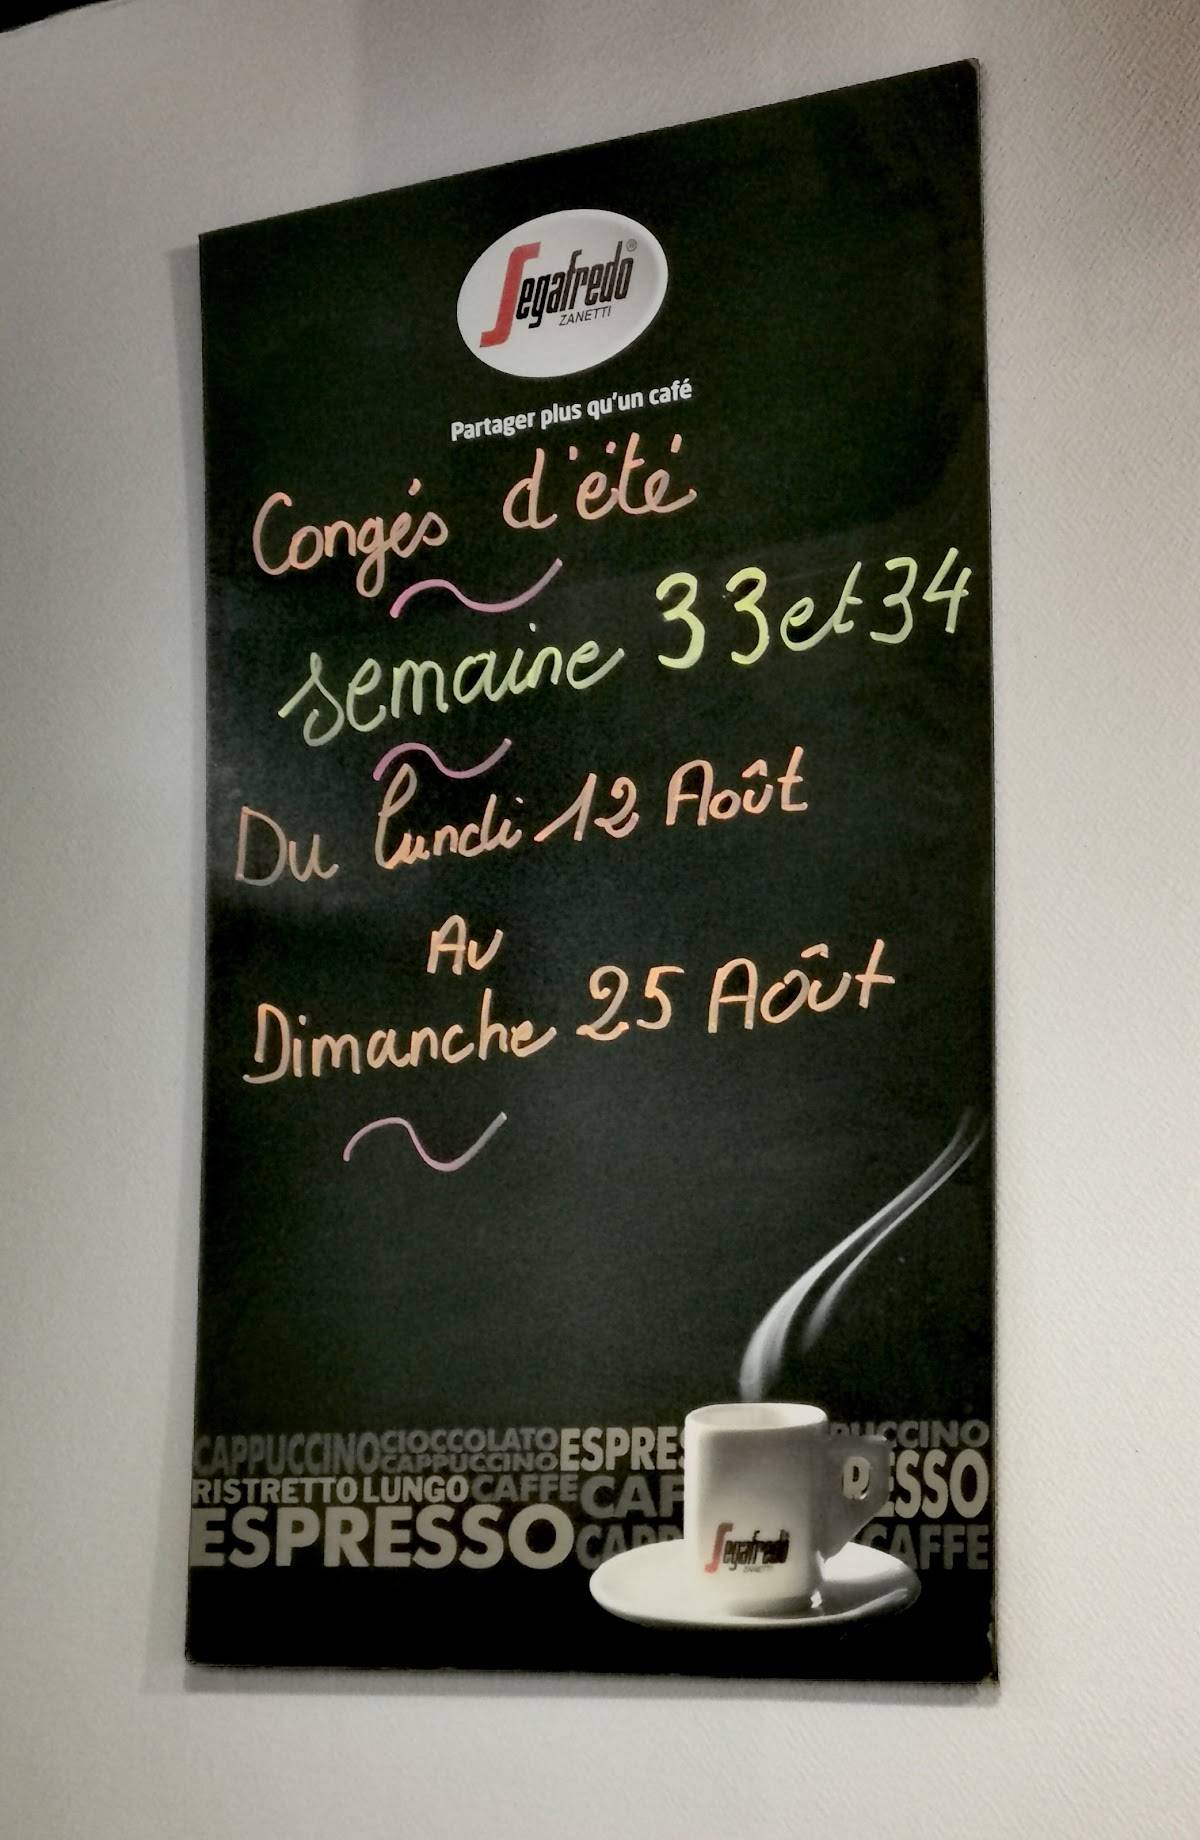 Segafredo®
ZANETTI
Partager plus qu'un café
Congés d'été
semaine 33 et 34
Du lundi 12 Août
Au
Dimanche 25 Août
CAPPUCCINO CIOCCOLATO ESPRES PUCCINO
CAPPUCCINO
RISTRETTO LUNGO CAFFE CAF RESSO
ESPRESSO CAPP CAFFE
Segafredo
ZANETTI